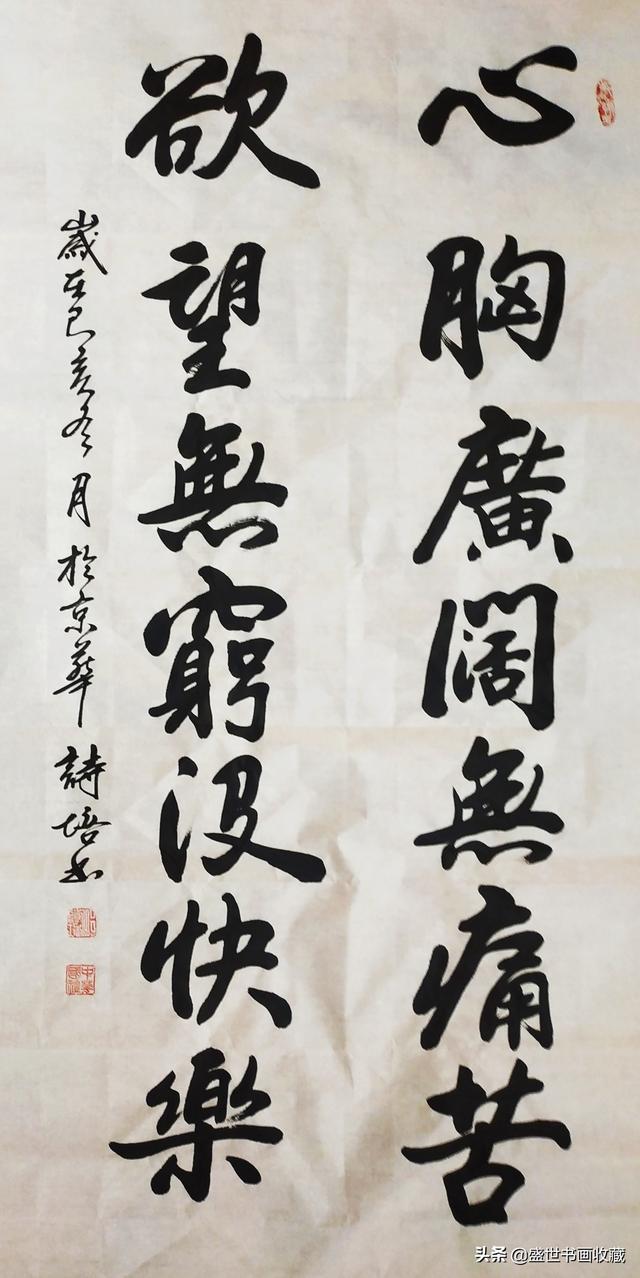 心胸廣阔無痛苦
欲望無窮没快樂
歲在己亥冬月於京華 詩培书
头条 @盛世书画收藏